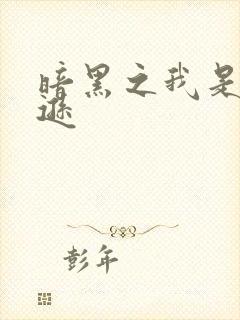 暗黑之我是
逊
彭年